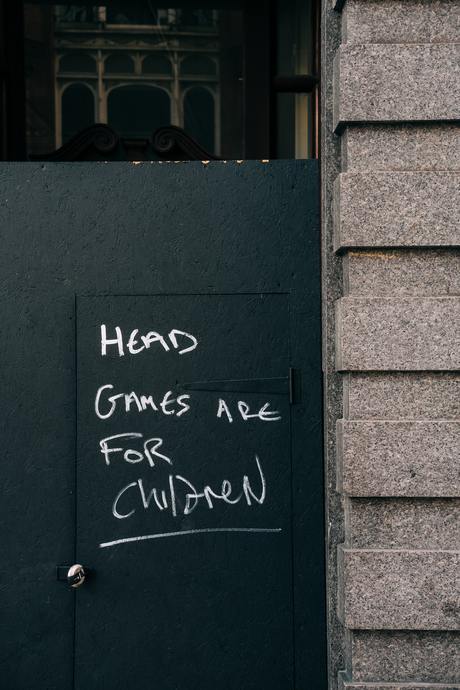 HEAD
GAMES ARE
FOR
CHIlDReN